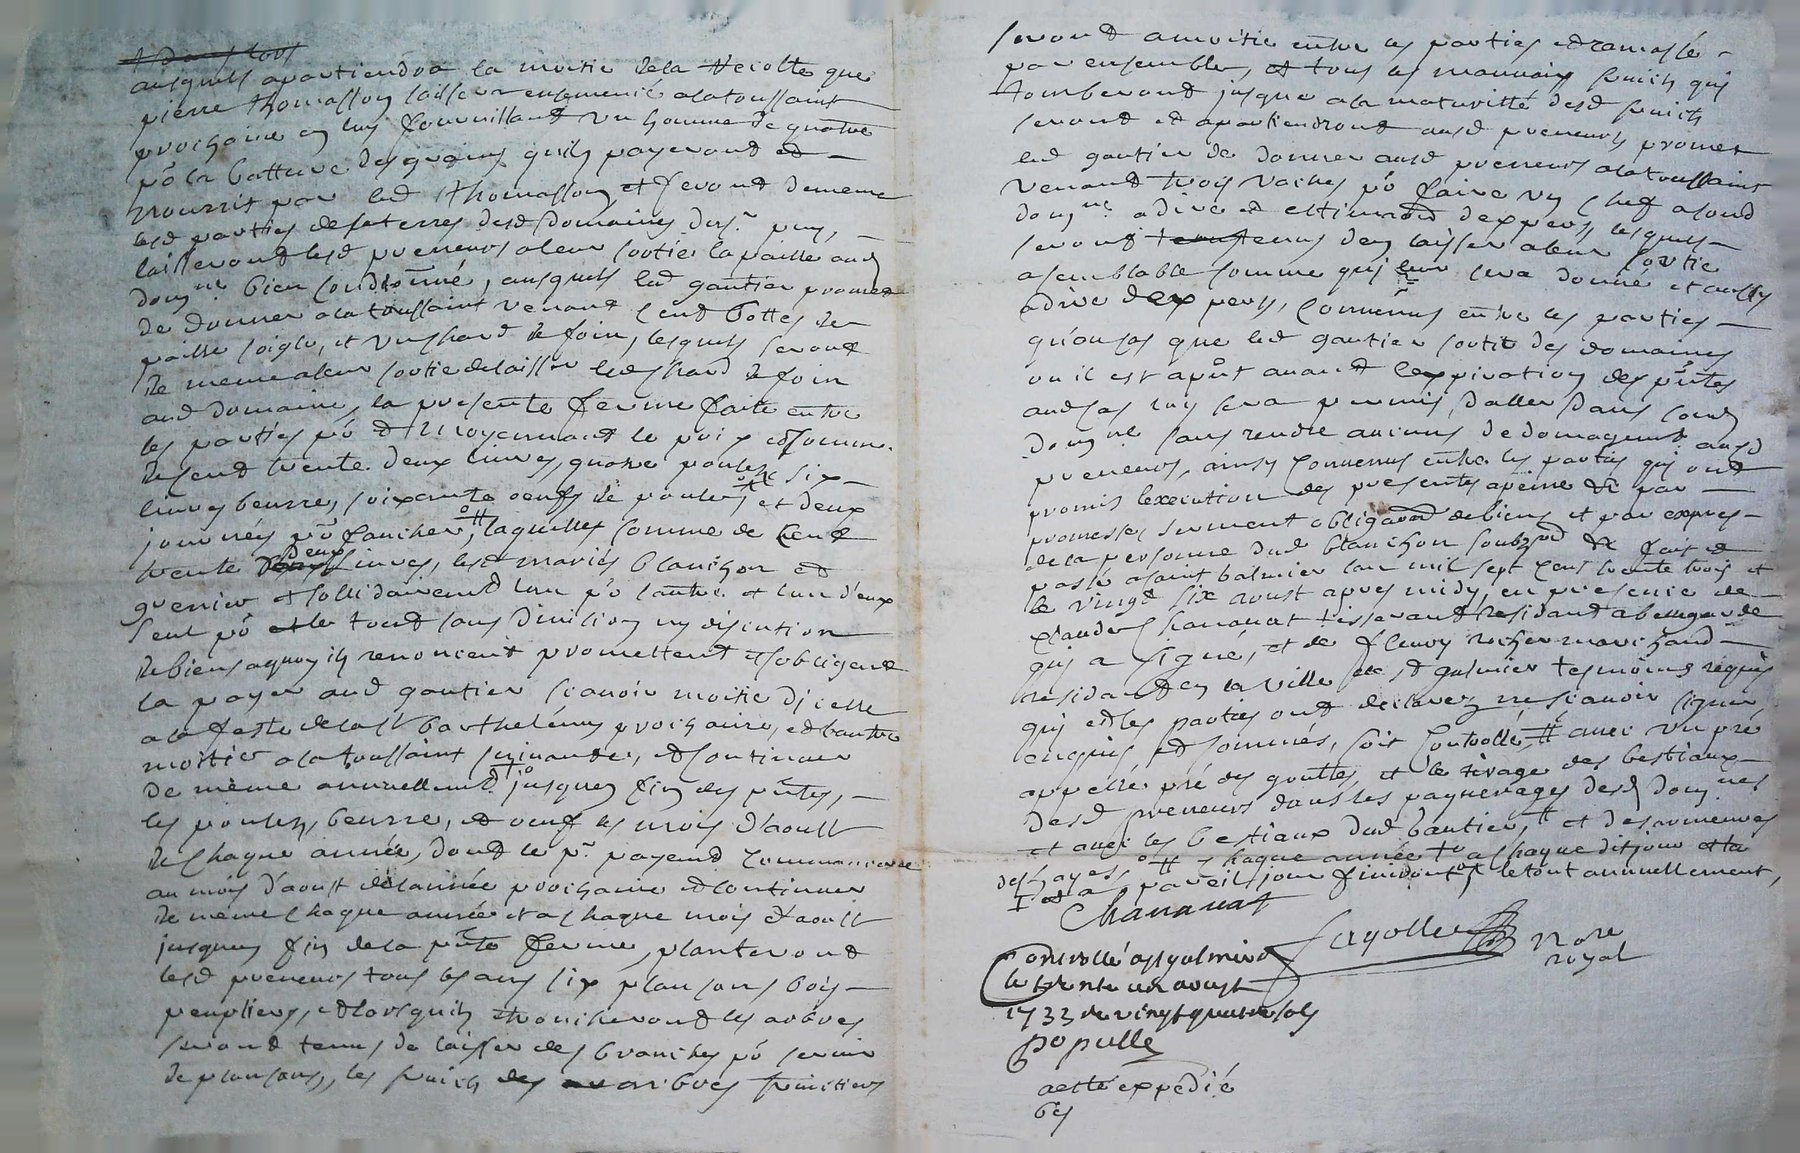 ausquels apartiendra la moitié dela Recolte que
pierre thomasson laissera ensemencé alatoussaint
prochaine en luy fournissant un homme de quatre
pō la batture des grains quils payeront et
nourrit par led thomasson, et seront de meme
lesd parties des terres desd domaines dusr puy,
laisseront lesd preneurs aleur sortie la paille aud
domne bien conditionné, ausquels led gautier promet
de donner alatoussaint venant cent bottes de
paille soigle, et un chard de foin, lesquels seront
de meme aleur sortie delaisser led chard de foin
aud domaine, la presente ferme faite entre
les parties pō et moyennant le prix et somme
de cent trente deux livres, quatre poulets six
livres beurre, soixante oeufs de poules, et deux
journées pō faucher, laquelles somme de cent
trente deux livres, lesd mariés blanchon et
grenier et sollidairement lun pō lautre et lun d'eux
seul pō le tout sans division ny discution
de biens aquoy ils renoncent promettent et sobligent
la payer aud gautier scavoir moitié dicelle
ala feste de la St barthelémy prochaine, et lautre
moitier alatoussaint suivante, et continuer
de même annuellemt jusques fin des pntes,
les poulets, beurre, et oeuf les mois d'aoust
de chaque année, dont le pr payemt commencera
au mois d'aoust de lannée prochaine et continuer
de même chaque année et a chaque mois d'aoust
jusques fin de la pnte ferme, planteront
lesd preneurs tous les ans six plansons bois
peupliers, et lors quils troncheront les arbres
seront tenus de laisser des branches pō servir
de plansons, les fruich des arbres fruictiers
seront a moitié entre les parties et ramassé
par ensembles, et tous les mauvais fruich qui
tomberont jusque ala maturitté desd fruich
seront et apartiendront ausd preneurs, promet
led gautier de donner ausd preneurs alatoussaint
venant trois vaches pō faire un chef asond
domne adire et estimaon dexpers, lesquels
seront tenus den laisser aleur sortie
asemblable somme qui leur sera donné et aussy
adire dexpers, convenus entre les parties
qu'ou cas que led gautier sortit des domaines
ou il est apnt avant lexpiration des pntes
aud cas luy sera permis, daller dans soud
domne sans rendre aucuns dedomagemt ausd
preneurs, ainsy convenus entre les parties qui ont
promis lexecution des presentes apeine &c par
promesses serment obligaon de biens et par expres
de la personne dud blanchon soubzon &c fait et
passé asaint balmier lan mil sept cent trente trois et
le vingt six aoust apres midy, en presence de
claude chananat tisserant residant abellegarde
qui a signé, et de fleury rocher marchand
residant en la ville de st galmier tesmoins requis
qui et les parties ont declarez ne scavoir signer
enquis et sommés, soit controllé, # avec un pré
appellé pré des gouttes, et le rivage des bestiaux
desd preneurs dans les paquerages desd domnes
et avec les bestiaux dud gautier, # et desormernes
des hayes, # chaque année to a chaque dit jour et la
pareil jour finiront, le tout annuellement,
Chananat
fayolle nore
royal
Controllé a st galmier
le trente un aoust
1733 r vingt quatre sols
populle
aesté expedié
bis